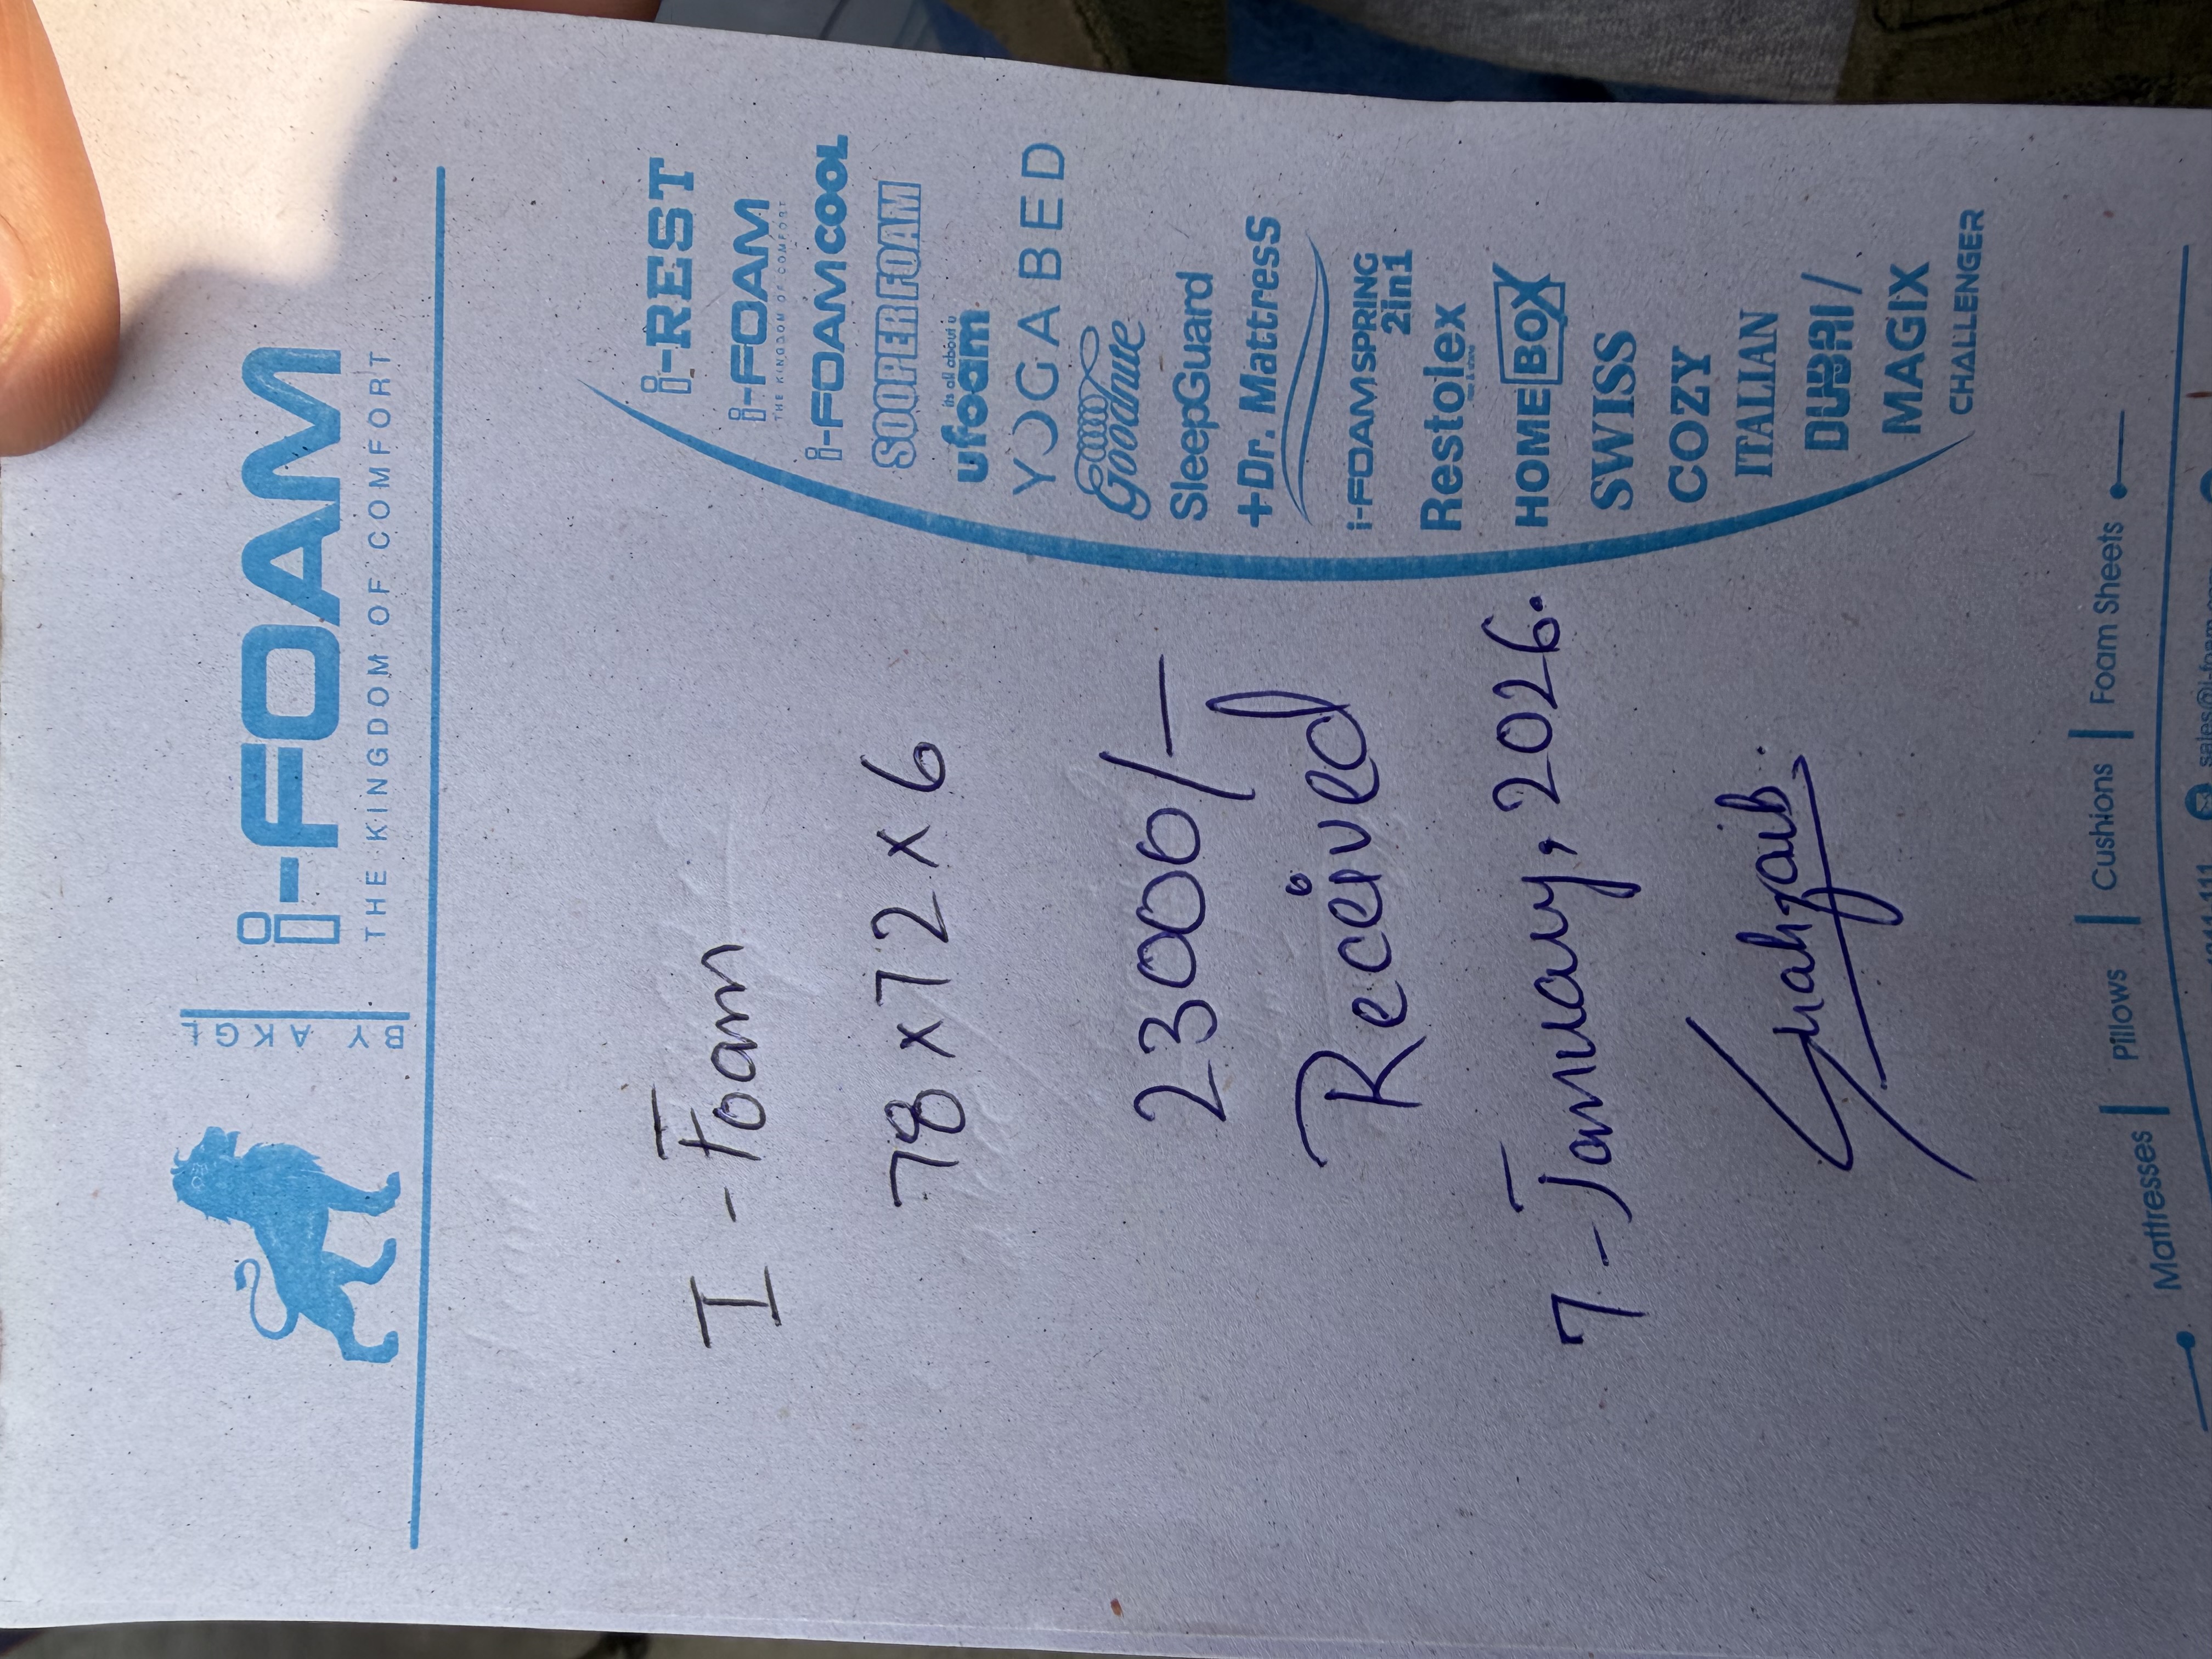 BY AKGL
i-FOAM
THE KINGDOM OF COMFORT
i-REST
i-FOAM
THE KINGDOM OF COMFORT
i-FOAMCOOL
SOOPER FOAM
its all about u
ufoam
YOGABED
Goodnite
SleepGuard
+Dr. Mattress
i-FOAMSPRING
2in1
Restolex
HOMEBOX
SWISS
COZY
ITALIAN
DUBAI /
MAGIX
CHALLENGER
I - Foam
78 x 72 x 6
23000/-
Received
7 - January, 2026.
Shahzaib.
Mattresses | Pillows | Cushions | Foam Sheets